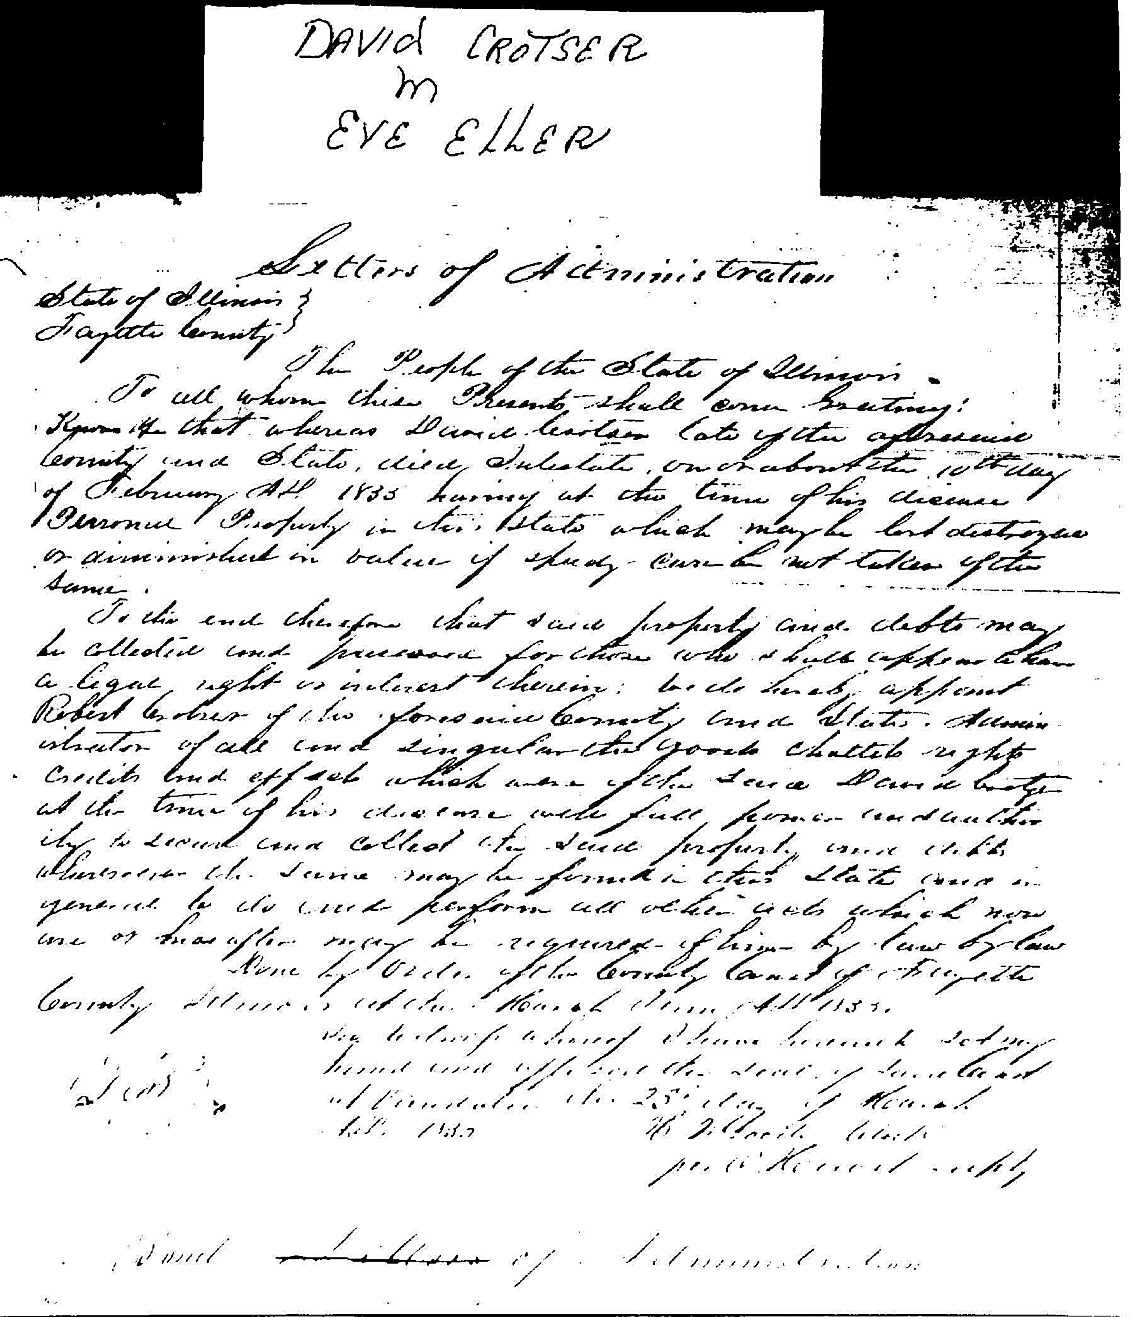 DAVId CROTSER
m
EVE ELLER
Letters of Administration
State of Illinois }
Fayette County }
The People of the State of Illinois -
To all whom these Presents shall come Greeting:
Know Ye that whereas David Crotser late of the aforesaid
County and State, died, Intestate, on or about the 10th day
of February AD 1835 having at the time of his disease
Personal Property in this State which may be lost destroyed
or diminished in value if speedy care be not taken of the
same.
To the end therefore that said property and debts may
be collected and preserved for those who shall appear to have
a legal right or interest therein: We do hereby appoint
Robert Crotser of the foresaid County and State. Admin
istrator of all and singular the goods chattels rights
credits and effects which were of the said David Crotser
at the time of his disease with full power and author
ity to secure and collect the said property and debts
wheresoever the same may be found in this State and in
general to do and perform all other acts which now
are or hereafter may be required of him by law by law
Done by Order of the County Court of Fayette
County Illinois at the March Term AD 1835.
In testimony whereof I have hereunto set my
hand and affixed the seal of said Court
at Vandalia the 25th day of March
AD. 1835
Seal
Clerk
per
Bond Letters of Administration